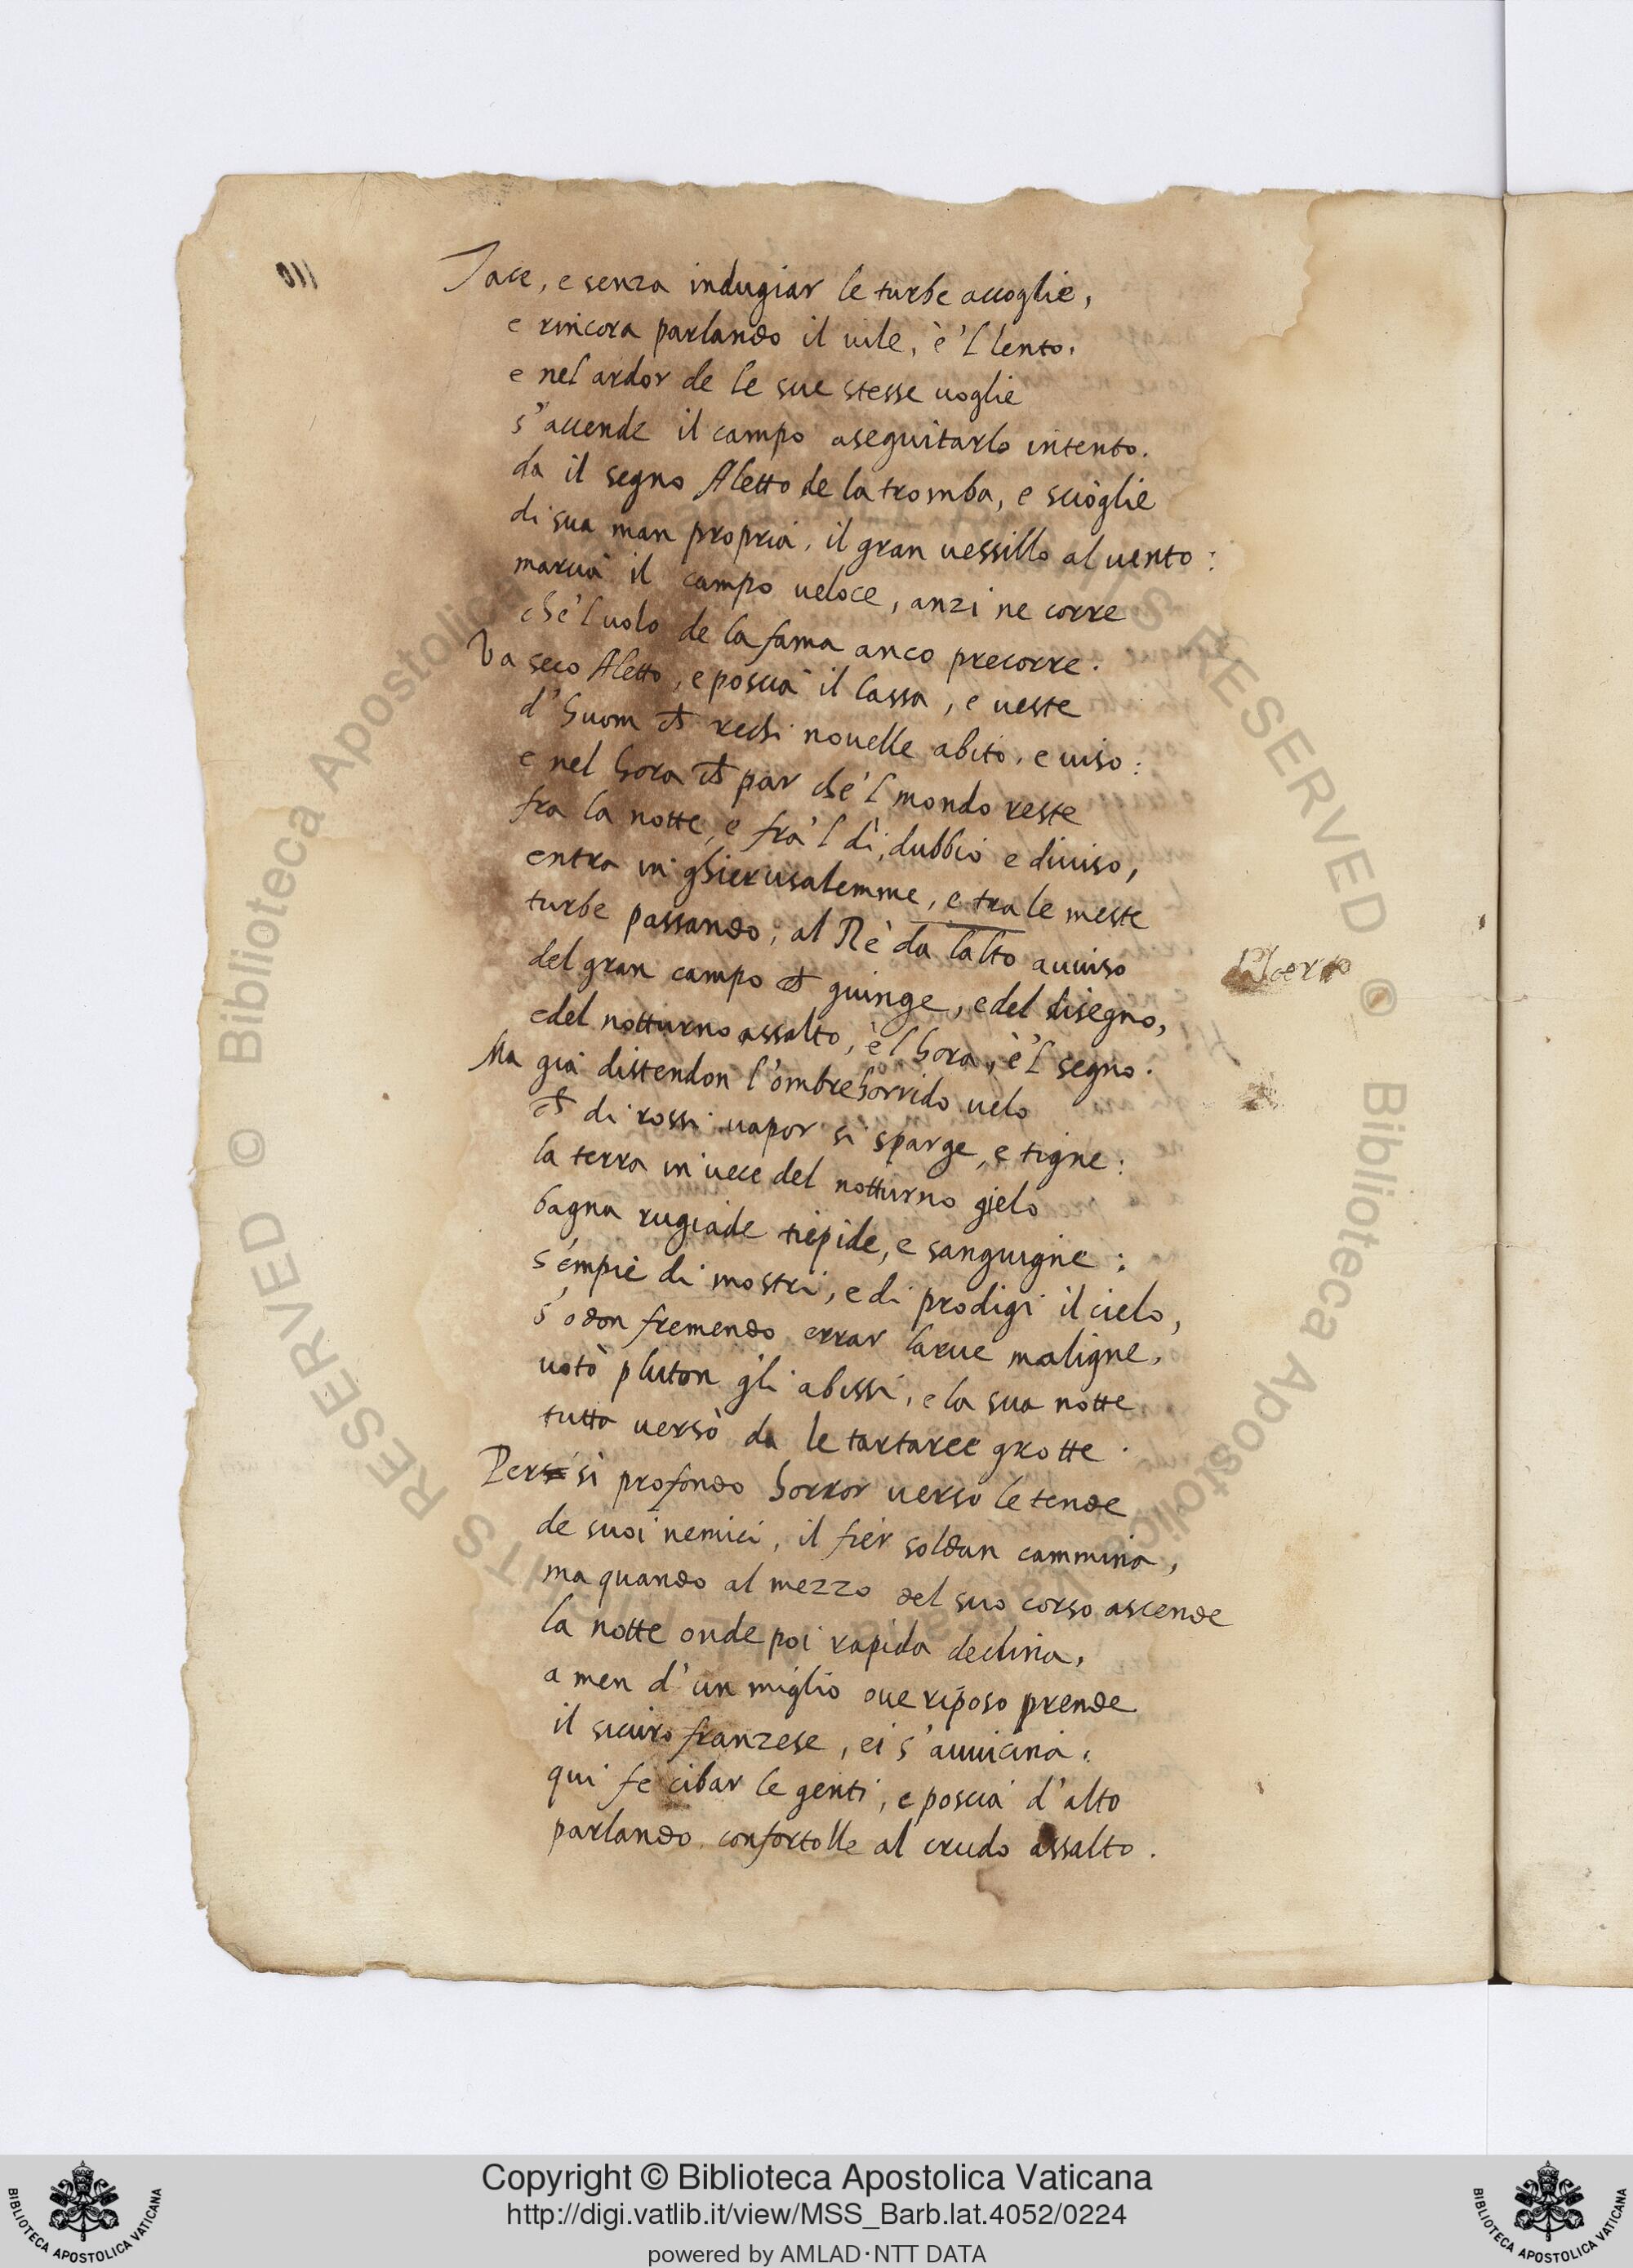 Tace, e senza indugiar le turbe accoglie,
e rincora parlando il uile, è 'l lento,
e nel ardor de le sue stesse uoglie
s'accende il campo aseguitarlo intento.
da il segno Aletto de la tromba, e scioglie
di sua man propria, il gran uessillo al uento:
marcia il campo ueloce, anzi ne corre
che'l uolo de la fama anco precorre.
Va seco Aletto, e poscia il lassa, e ueste
d'huom ch rechi nouelle abito, e uiso:
e nel hora ch par che'l mondo reste
fra la notte, e fra'l dì, dubbio e diuiso,
entra in ghierusalemme, e tra le meste
turbe passando, al Rè da lalto auuiso
del gran campo ch giunge, e del disegno,
e del notturno assalto, è l hora, è'l segno.
Ma già distendon l'ombre horrido uelo
ch di rossi uapor si sparge, e tigne:
la terra in uece del notturno gielo
bagna rugiade tiepide, e sanguigne:
s'empie di mostri, e di prodigi il cielo,
s'odon fremendo errar larue maligne,
uotò pluton gli abissi, e la sua notte
tutta uersò da le tartaree grotte.
Per sì profondo horror uerso le tende
de suoi nemici, il fier soldan cammina,
ma quando al mezzo del suo corso ascende
la notte onde poi rapida declina,
a men d'un miglio oue riposo prende
il sicuro franzese, ei s'auuicina.
qui fe cibar le genti, e poscia d'alto
parlando confortolle al crudo assalto.
Copyright © Biblioteca Apostolica Vaticana
http://digi.vatlib.it/view/MSS_Barb.lat.4052/0224
powered by AMLAD·NTT DATA
BIBLIOTECA APOSTOLICA VATICANA
BIBLIOTECA APOSTOLICA VATICANA